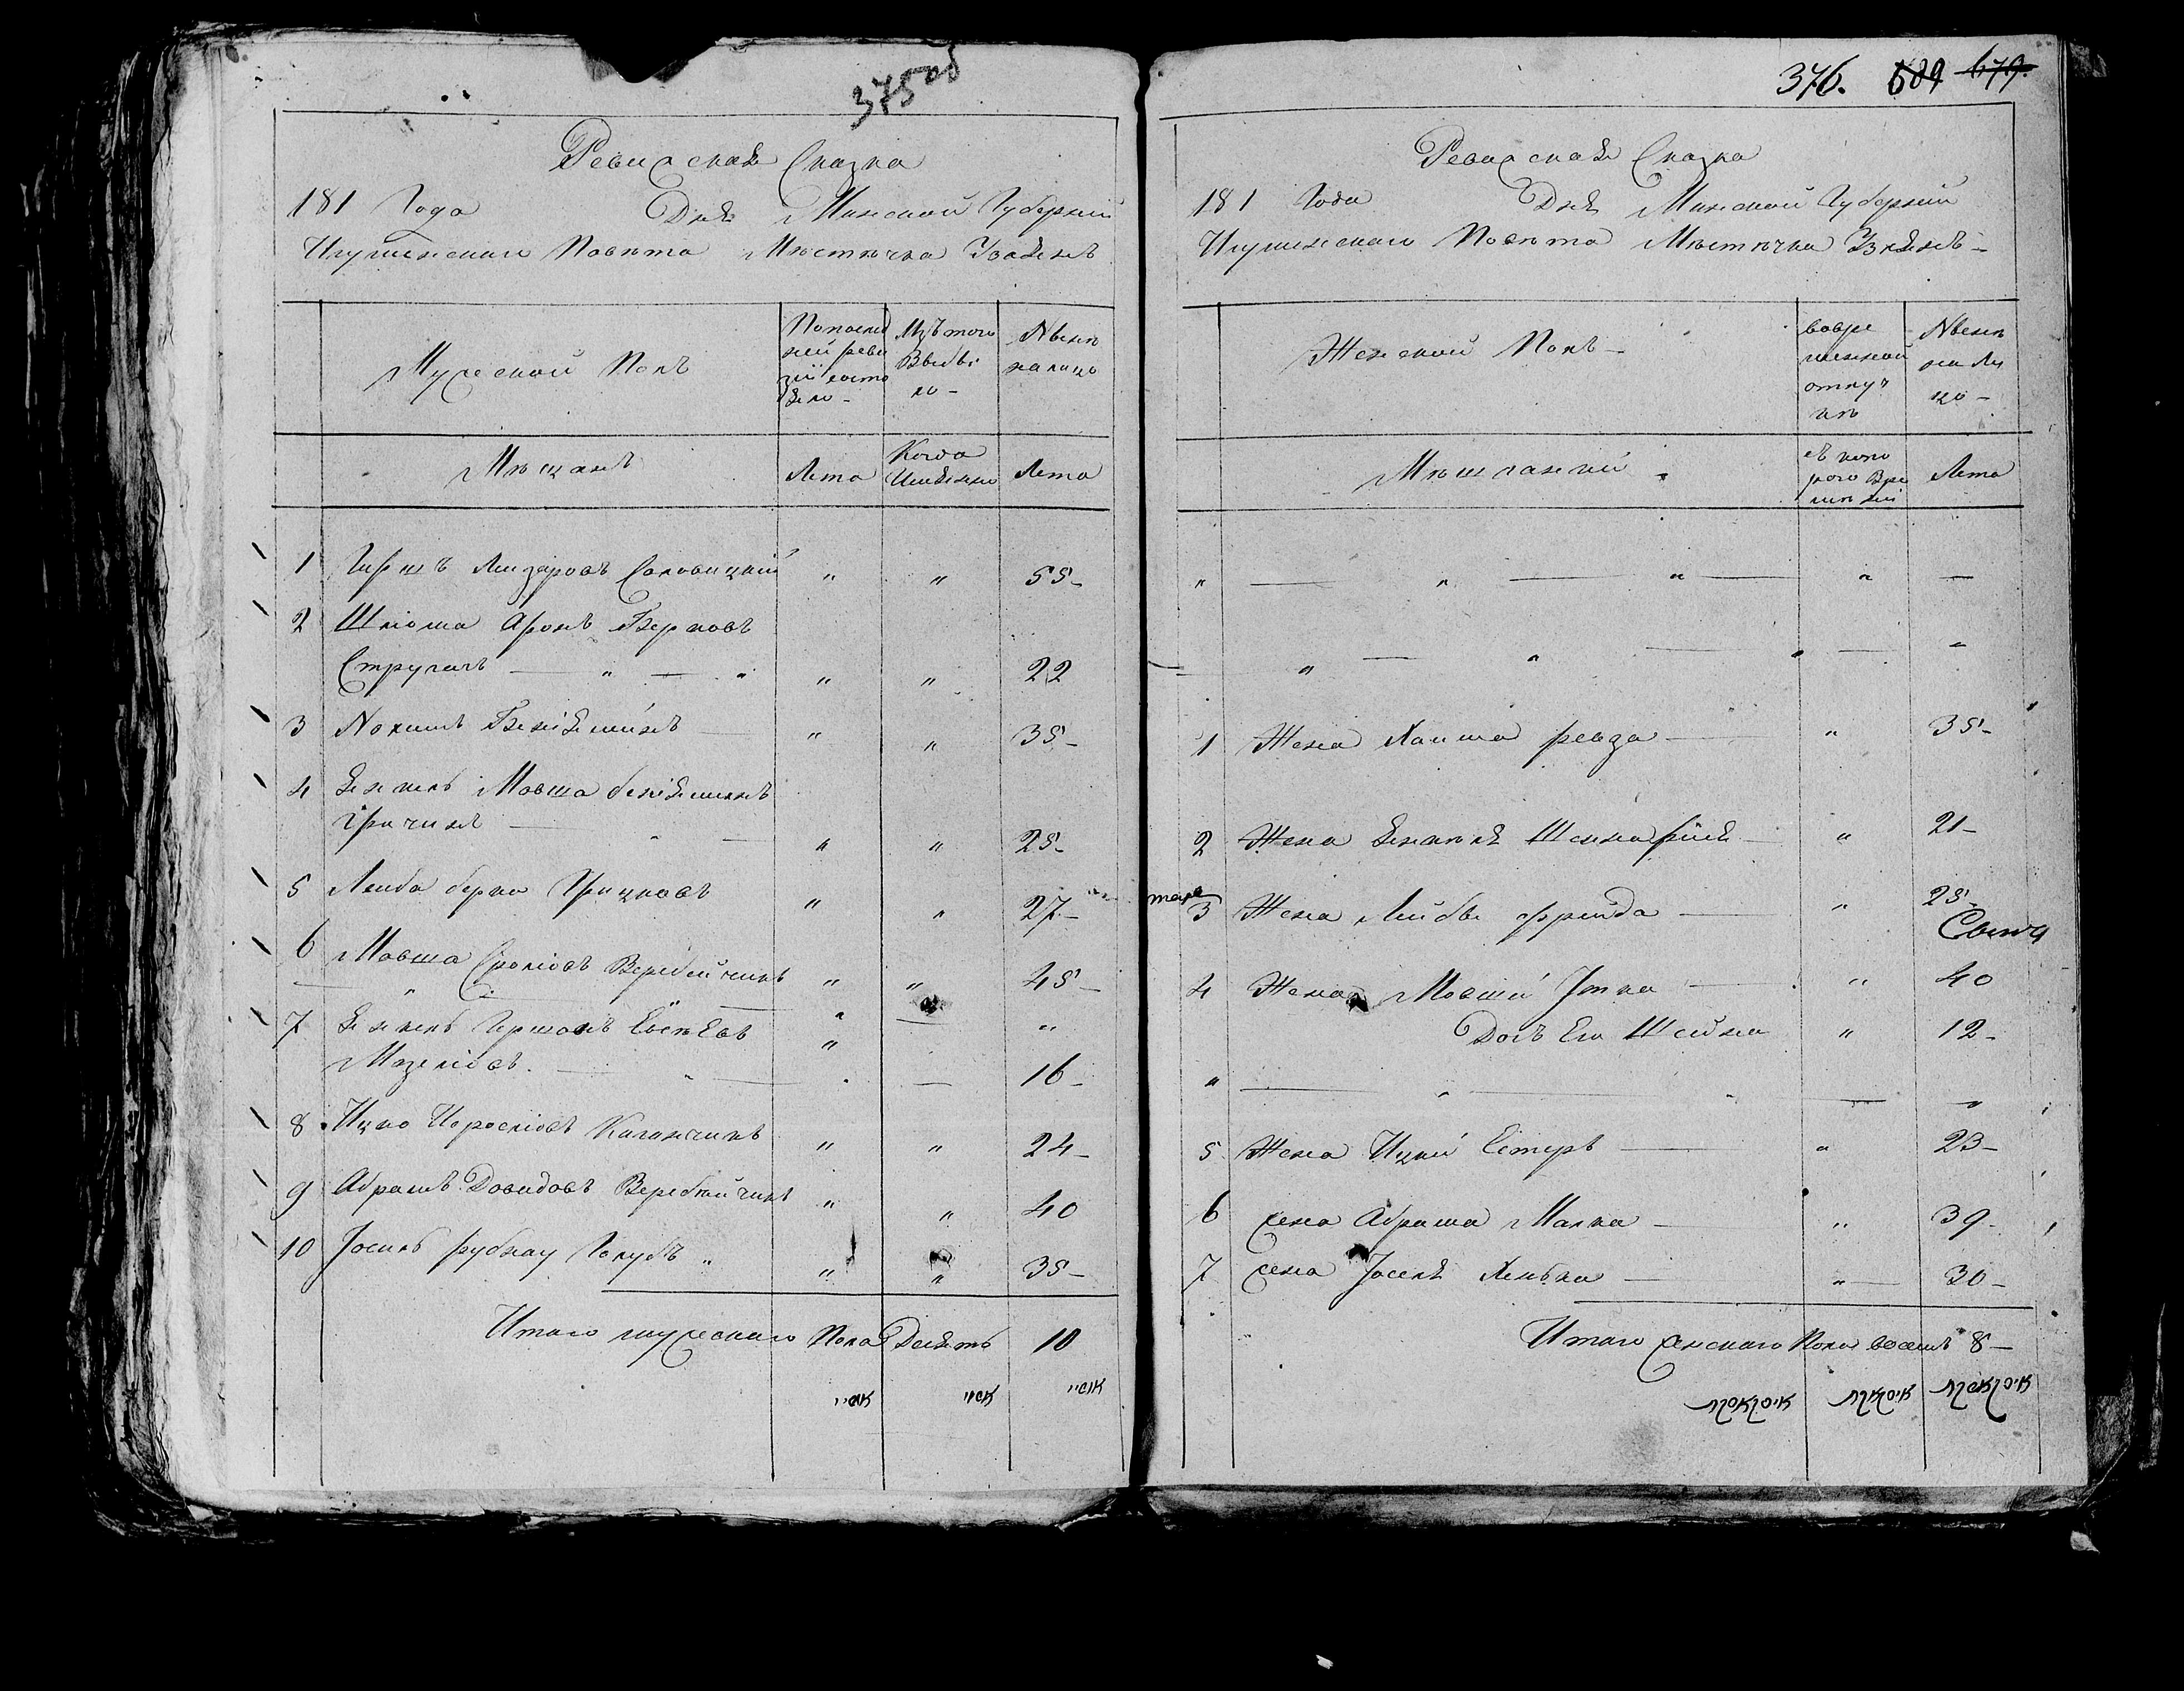 375 об
Ревизская Сказка
181 Года Дня Минской Губерний
Игуменскаго Повѣта Мѣстѣчка Узлянъ
Мужеской Полъ
Попослед
ней реви
зіи состо
яло -
Изъ того
Выбы
ло -
Нынѣ
налицо
Мѣщанъ
Лета
Когда
Имянно
Лета
1 Гиршъ Лейзаровъ Соловицкій " " 55-
2 Шліома Аронъ Берковъ
Стругачъ — " — " " " 22
3 Хаимъ Беніяминъ — " " 35-
4 Янкель Мовша беніяминъ
Гричинъ — " — " " 25-
5 Лейба берка Грицковъ " " 27-
6 Мовша Сроліовъ Веребейчикъ " " 45-
7 Янкель Гершонъ
" " 16-
8 Ицко Каганчикъ " " 24-
9 Абрамъ Давидовъ Веребейчикъ " " 40
10 Іосель Голубъ " " " 35-
Итого мужескаго Пола Десять 10
376. 689 679.
Ревизская Сказка
181 Года Дня Минской Губерний
Игуменскаго Повѣта Мѣстѣчка Узлянъ -
Женской Полъ -
вовре
менной
отлуч
кѣ
Нынѣ
на ли
цо -
Мѣщанкий
съ кото
рого Вре
мѣний
Лета
" — " — " — " —
" — " — " — "
1 Жена Хаима ревза — " 35-
2 Жена Янкеля — " 21-
3 Жена Лейбы фрейда — " 25-
4 Жена Мовши Итка — " 40
Дочъ Его Шейна " 12-
" — " — " — "
5 Жена Ицки Естеръ — " 23-
6 жена Абрама Малка — " 39-
7 жена Іоселя Хенька — " — 30-
Итого женскаго Пола восемъ 8-